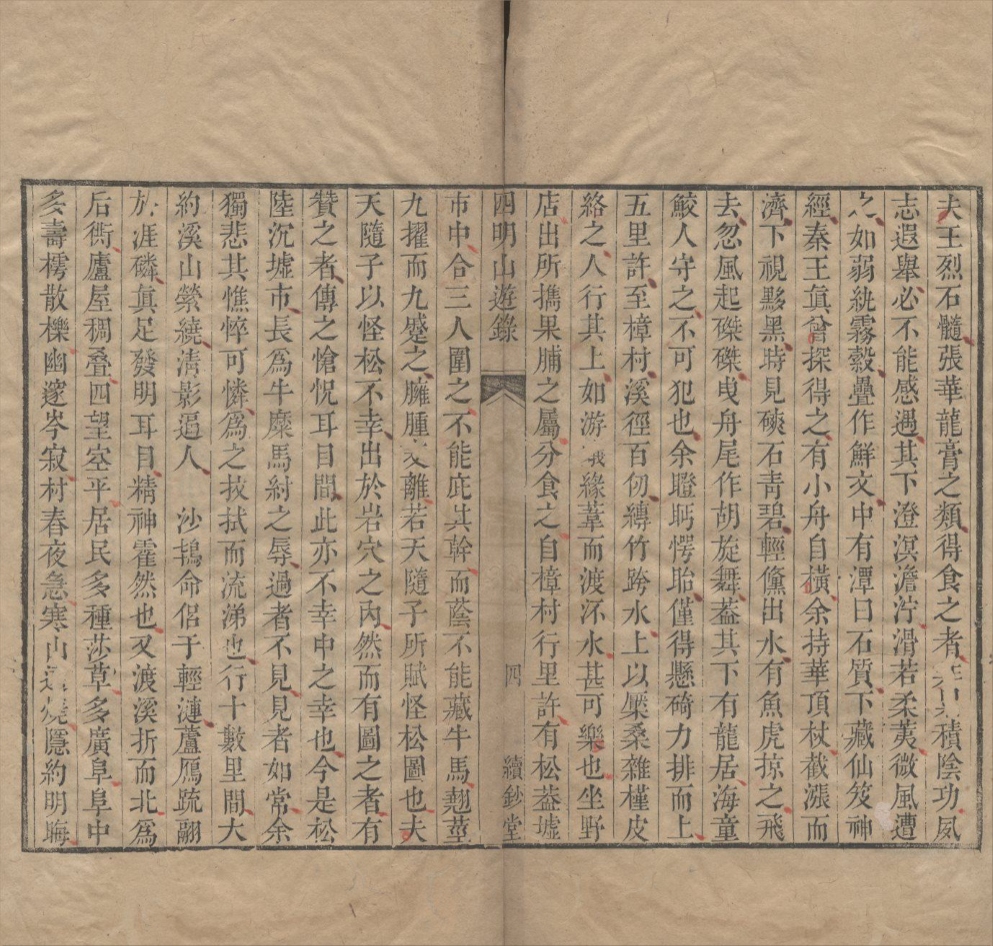 夫王烈石髓張華龍膏之類得食之者積陰功夙
志遐舉必不能感遇其下澄溟澹泞滑若柔荑微風遭
之如弱絖霧縠疊作鮮文中有潭曰石質下藏仙笈神
經秦王眞曾探得之有小舟自橫余持華頂杖截漲而
濟下視黟黑時見磢石靑碧輕儵出水有魚虎掠之飛
去忽風起磔磔曳舟尾作胡旋舞葢其下有龍居海童
鮫人守之不可犯也余瞪眄愕眙僅得懸碕力排而上
五里許至樟村溪徑百仞縛竹跨水上以檿桑雜槿皮
絡之人行其上如游緣葦而渡泝水甚可樂也坐野
店出所攜果脯之屬分食之自樟村行里許有松葢墟
四明山遊錄 四 續鈔堂
市中合三人圍之不能庇其幹而蔭不能藏牛馬翹莖
九擢而九蹙之臃腫支離若天隨子所賦怪松圖也夫
天隨子以怪松不幸出於岩穴之內然而有圖之者有
贊之者傳之愴怳耳目間此亦不幸中之幸也今是松
陸沉墟市長爲牛縻馬紂之辱過者不見見者如常余
獨悲其憔悴可憐爲之抆拭而流涕也行十數里間大
約溪山縈繞淸影逼人 沙鵠命侶于輕漣蘆鴈䟽翮
於涯磷眞足發明耳目精神霍然也又渡溪折而北爲
后衖廬屋稠叠四望空平居民多種莎草多廣阜阜中
多壽樗散櫟幽邃岑寂村春夜急寒山遠燒隱約明晦